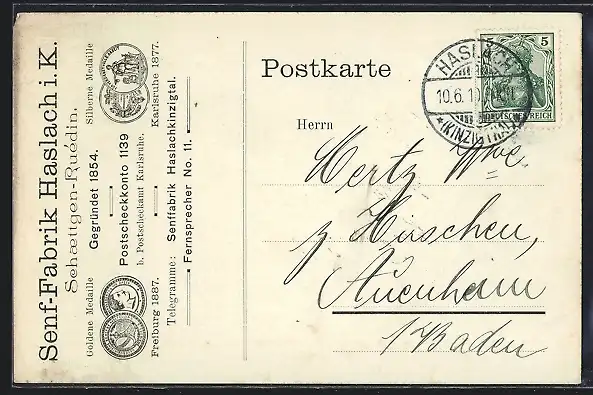 Senf-Fabrik Haslach i. K.
Schættgen-Ruédin.
Goldene Medaille
Silberne Medaille
Gegründet 1854.
Postscheckkonto 1139
b. Postscheckamt Karlsruhe.
Freiburg 1887.
Karlsruhe 1877.
Telegramme: Senffabrik Haslachkinzigtal.
Fernsprecher No. 11.
Postkarte
HASLACH
10.6.1
*(KINZIGTHAL)
5
DEUTSCHES REICH
Herrn
Hertz Wwe.
z. Huschen,
Auenheim
/Baden